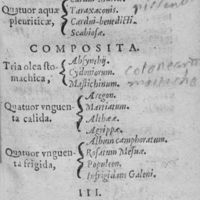 Quatuor aquæ
pleuriticæ,
Taraxaconis.
Cardui-benedicti.
Scabiosæ.
COMPOSITA.
Tria olea sto-
machica,
Absynthij.
Cydoniorum.
Mastichinum.
Quatuor vnguen-
ta calida.
Aregon.
Martiatum.
Altheæ.
Agrippæ.
Quatuor vnguen-
ta frigida,
Album camphoratum.
Rosatum Mesuæ.
Populeon.
Infrigidans Galeni.
III.